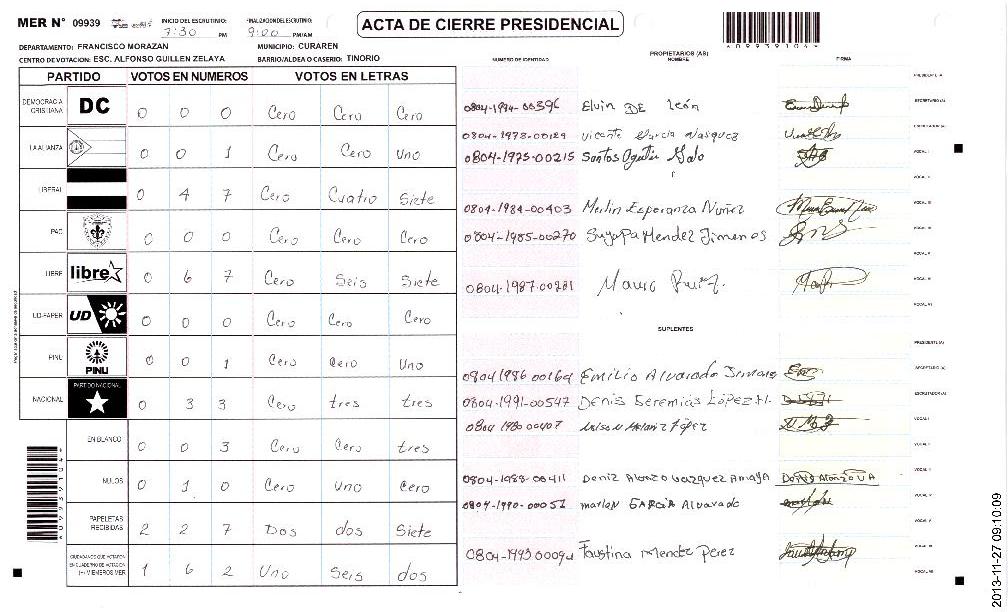 MER N° 09939 INICIO DEL ESCRUTINIO: 7:30 PM FINALIZACION DEL ESCRUTINIO: 9:00 PM/AM ACTA DE CIERRE PRESIDENCIAL
DEPARTAMENTO: FRANCISCO MORAZAN MUNICIPIO: CURAREN
CENTRO DE VOTACION: ESC. ALFONSO GUILLEN ZELAYA BARRIO/ALDEA O CASERIO: TINORIO
PARTIDO VOTOS EN NUMEROS VOTOS EN LETRAS
DEMOCRACIA CRISTIANA DC 0 0 0 Cero Cero Cero
LA ALIANZA 0 0 1 Cero Cero Uno
LIBERAL 0 4 7 Cero Cuatro Siete
PAC 0 0 0 Cero Cero Cero
LIBRE libre 0 6 7 Cero Seis Siete
UD-FAPER UD 0 0 0 Cero Cero Cero
PINU PINU 0 0 1 Cero Cero Uno
NACIONAL PARTIDO NACIONAL 0 3 3 Cero tres tres
EN BLANCO 0 0 3 Cero Cero tres
NULOS 0 1 0 Cero Uno Cero
PAPELETAS RECIBIDAS 2 2 7 Dos dos Siete
CIUDADANOS QUE VOTARON EN CUADERNO DE VOTACION (+) MIEMBROS MER 1 6 2 Uno Seis dos
NUMERO DE IDENTIDAD PROPIETARIOS (AS) NOMBRE FIRMA
PRESIDENTE (A)
0804-1974-00396 Elvin DE León SECRETARIO (A)
0804-1978-00129 Vicente Murcia Vasquez ESCRUTADOR (A)
0804-1975-00215 Santos Galo VOCAL I
VOCAL II
0804-1984-00403 Merlin Esperanza Nuñez VOCAL III
0804-1985-00270 Suyapa Mendez Jimenes
VOCAL V
0804-1987-00281 Mauro Ruiz
SUPLENTES
PRESIDENTE (A)
0804 1986 00169 Emilio Alvarado SECRETARIO (A)
0804-1991-00547 Denis Geremias López H. ESCRUTADOR (A)
López VOCAL I
VOCAL II
0804-1988-00411 Deniz Alonzo Vazquez Amaya
0804-1990-00056 marlon GARCIA Alvarado
0804-1993 00094 Faustina Mendez Perez
09939104
2013-11-27 09:10:09